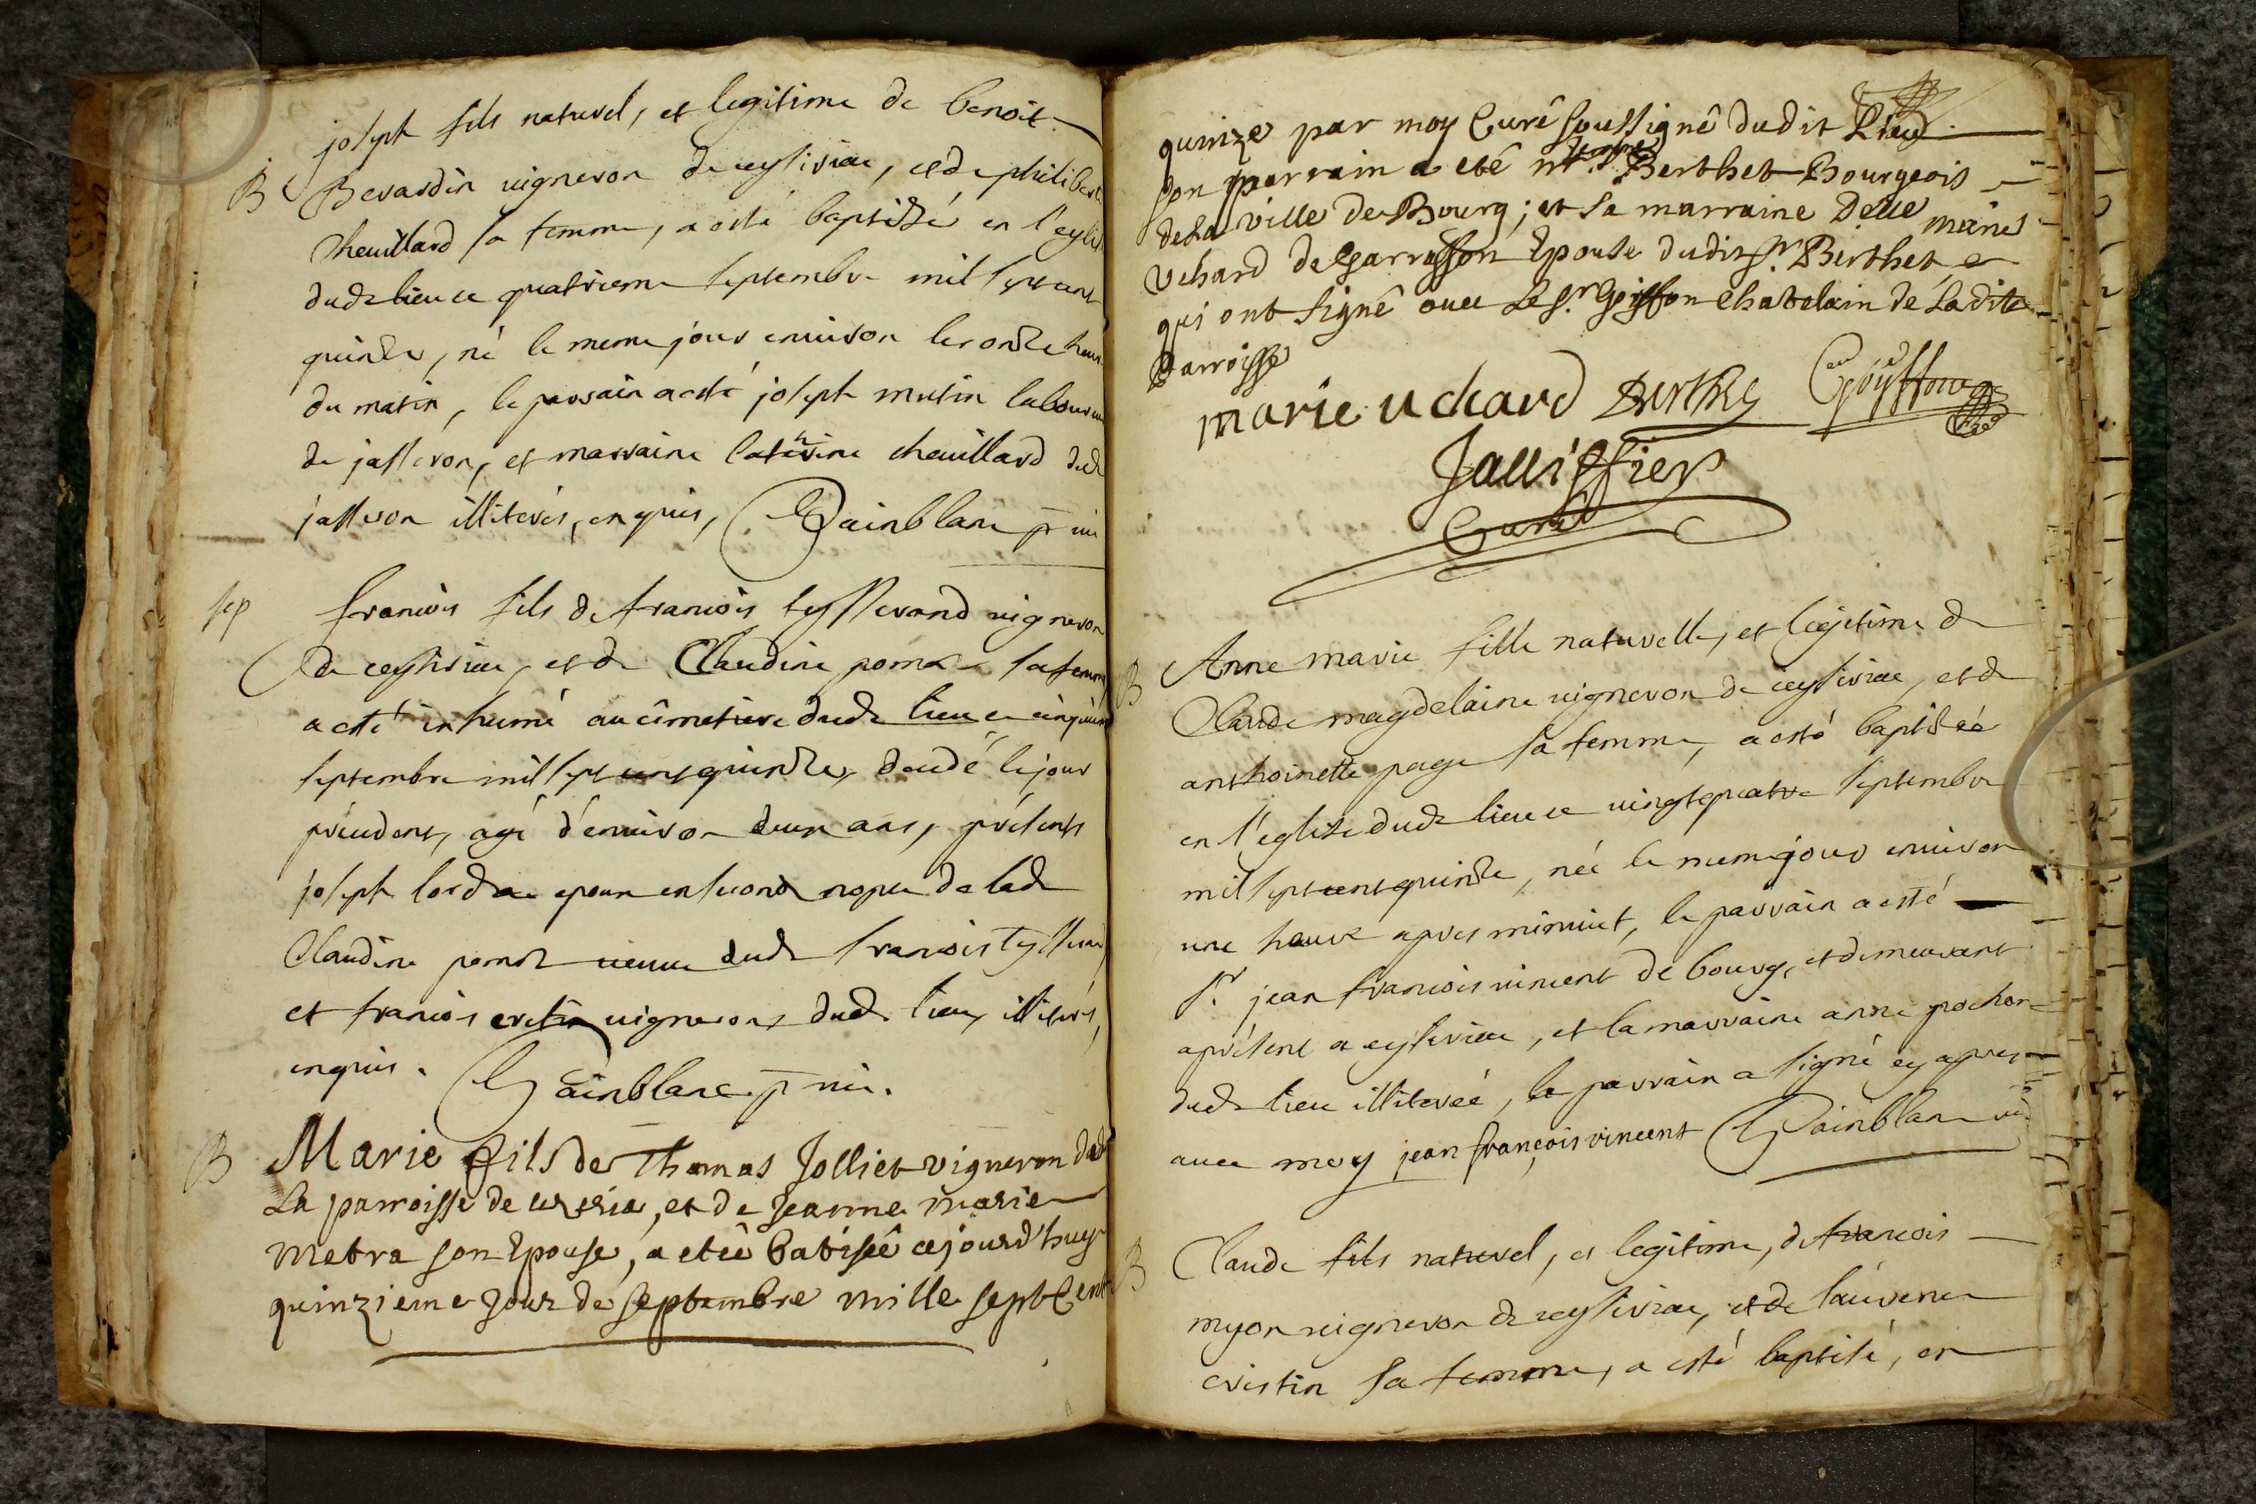 joseph fils naturel, et legitime de benoit
B Berardin vigneron de ceyseriac, et de philiberte
cheuillard sa femme, a esté baptizé en l'eglise
dud lieu ce quatrieme septembre mil sept cent
quinze, né le meme jour enuiron les onze heures
du matin, le parrain a esté joseph mutin laboureur
de jasseron, et marraine catherine cheuillard dud
jasseron illiterés, enquis, Painblanc
sep francois fils de francois teysserand vigneron
de ceyseriac, et de Claudine sa femme
a esté inhumé au cimetiere dud lieu ce cinquieme
septembre mil sept cent quinze, decedé le jour
precedent, agé d'enuiron deux ans, présents
joseph epoux en second nopce de lad
Claudine veuue dud francois teysserand
et francois vignerons dud lieu illiterés,
enquis. Painblanc
B Marie fils de Thomas Jolliet vigneron dud
La parroisse de, et de Jeanne marie
Metra son Epouse, a eteê batisêê cejourd'huy
quinzieme Jour de septembre mille sept Cent
quinze par moy Curê soussignê dudit Lieu
son parrain a etê Berthet Bourgeois
de La ville de Bourg; et sa marraine Delle marie
vchard de garrasson Epouse dudit sr. Berthet
qui ont signê auec Le Sr. Goiffon Chatelain de Ladite
Parroisse
marie uchard Berthet Goyffon
Jauissier
Curé
B Anne marie fille naturelle, et legitime de
Claude magdelaine vigneron de ceyseriac, et de
anthoinette page sa femme, a esté baptizéé
en l'eglise dud lieu ce vingt quatre septembre
mil sept cent quinze, née le meme jour enuiron
une heure apres minuit, le parrain a esté
Sr. jean francois vincent de bourg, et demeurant
apresent a ceyseriac, et la marraine anne pochon
dud lieu illiteréé, le parrain a signé cy apres
auec moy jean françois vincent Painblanc
B Claude fils naturel, et legitime, de francois
myon vigneron de ceyseriac, et de laurence
cristin sa femme, a esté baptisé, en